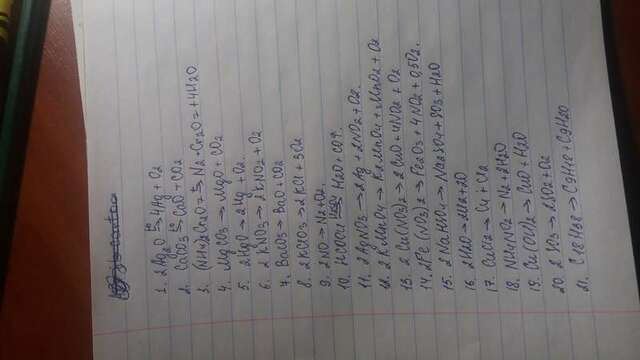 1. 2Ag2O t°→ 4Ag + O2
2. CaCO3 t°→ CaO + CO2
3. (NH4)2Cr2O7 t→ N2 + Cr2O3 + 4H2O
4. MgCO3 → MgO + CO2
5. 2HgO → 2Hg + O2.
6. 2KNO3 → 2KNO2 + O2
7. BaCO3 → BaO + CO2
8. 2KClO3 → 2KCl + 3O2
9. 2NO → N2 + O2.
10. HCOOH H2SO4→ H2O + CO↑.
11. 2AgNO3 → 2Ag + 2NO2 + O2.
12. 2KMnO4 → K2MnO4 + MnO2 + O2
13. 2Cu(NO3)2 → 2CuO + 4NO2 + O2
14. 2Fe(NO3)2 → Fe2O3 + 4NO2 + 0,5O2.
15. 2NaHSO4 → Na2SO4 + SO3 + H2O
16. 2H2O → 2H2 + 2O
17. CuCl2 → Cu + Cl2
18. NH4NO2 → N2 + 2H2O
19. Cu(OH)2 → CuO + H2O
20. 2SO3 → 2SO2 + O2
21. C18H38 → C9H18 + C9H20